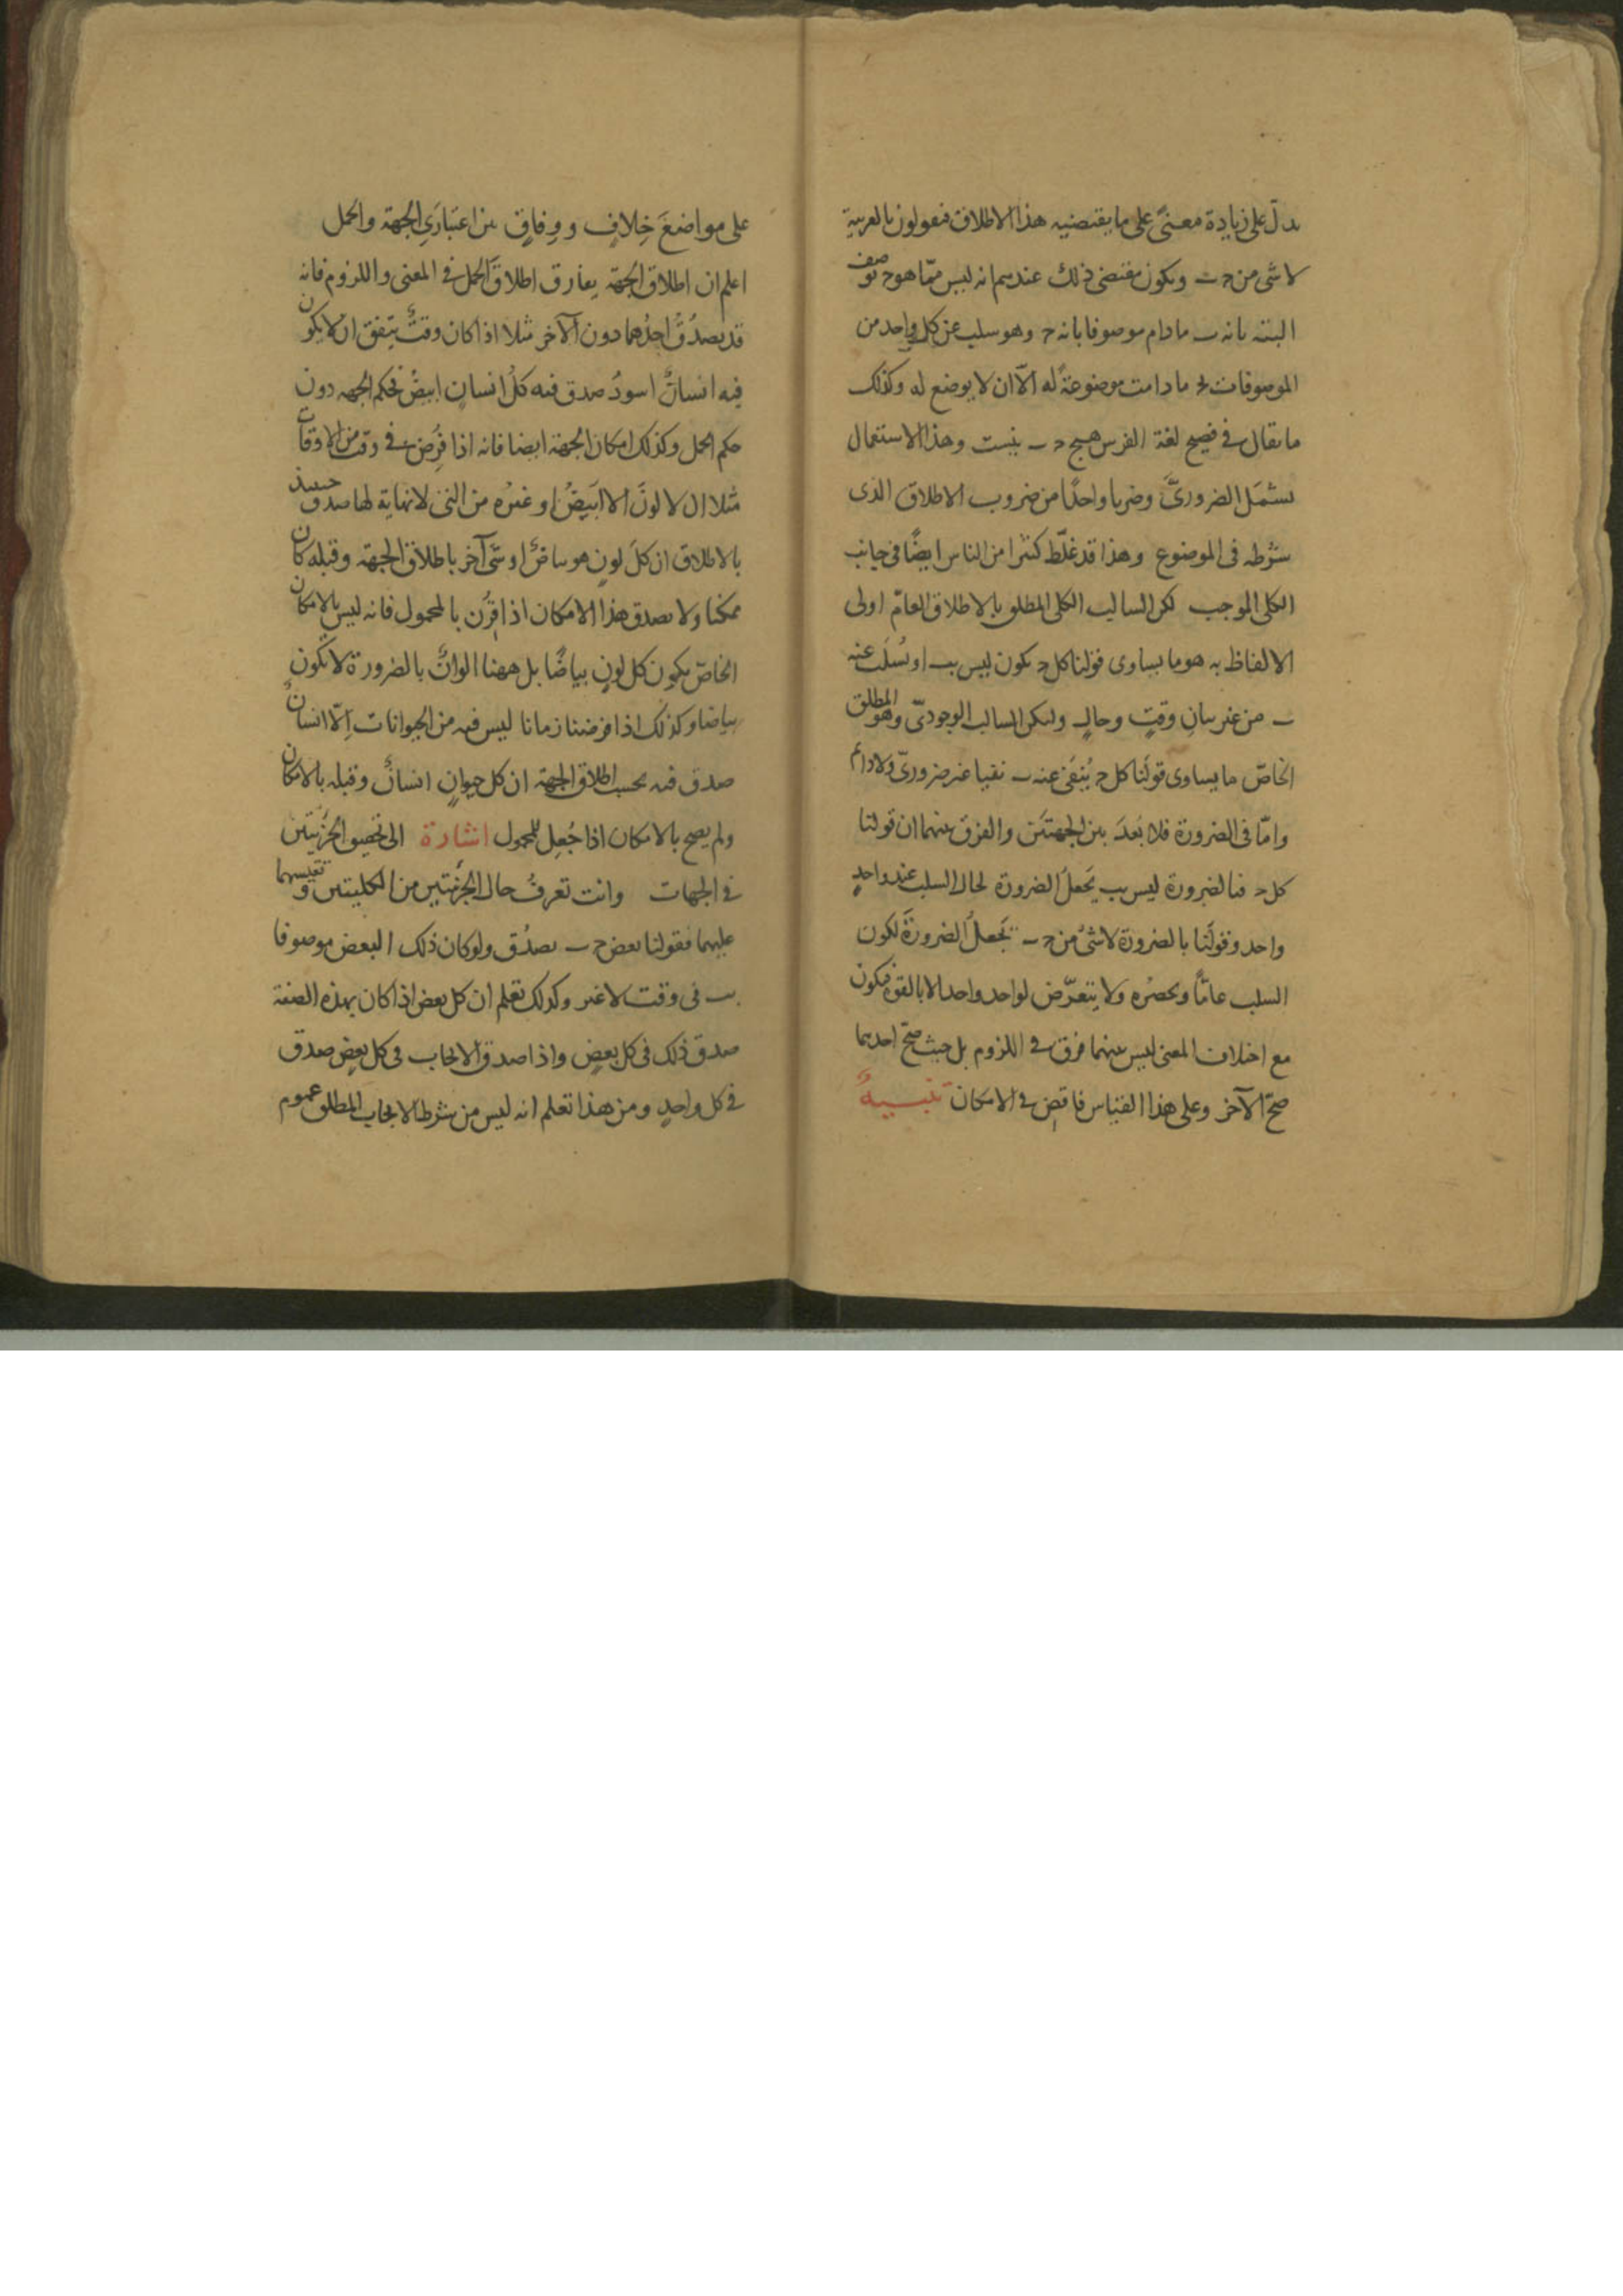 يدلّ على زيادة معنىً على ما يقتضيه هذا الاطلاق فيقولون بالعربية
لا شى من ج ب ويكون مقتضى ذلك عندهم انه ليس ممّا هو ج يوصف
البته بانه ب ما دام موصوفا بانه ج وهو سلب عن كل واحد من
الموصوفات بج ما دامت موضوعةً له الّا ان لا يوضع له وكذلك
ما يقال فى فصيح لغة الفرس هيچ ج ب نيست وهذا الاستعمال
يشمل الضرورىَّ وضربا واحدًا من ضروب الاطلاق الذى
شرطه فى الموضوع وهذا قد غلّط كثيرا من الناس ايضًا فى جانب
الكلى الموجب لكن السالب الكلى المطلق بالاطلاق العامّ اولى
الالفاظ به هو ما يساوى قولنا كل ج يكون ليس بب او يُسلَب عنه
ب من غير بيانِ وقتٍ وحالٍ وليكن السالب الوجودىّ وهو المطلق
الخاصّ ما يساوى قولَنا كل ج يُنفَى عنه ب نفيا غير ضرورىّ ولا دائم
وامّا فى الضرورة فلا بُعدَ بين الجهتَين والفرق بينهما ان قولنا
كل ج فبالضرورة ليس بب يَجعلُ الضرورة لحال السلب عند واحدٍ
واحد وقولَنا بالضرورة لا شىُ من ج ب يَجعلُ الضرورةَ لكون
السلب عامًّا ويحصرُه ولا يتعرّض لواحد واحد الا بالقوة فيكون
مع اختلاف المعنى ليس بينهما فرق فى اللزوم بل حيث صحّ احديهما
صحّ الآخر وعلى هذا القياس فاقضِ فى الامكان تنبيهٌ
على مواضعَ خِلافٍ ووِفاقٍ بين اعتبارَىِ الجهة والحمل
اعلم ان اطلاق الجهة يفارق اطلاقَ الحمل فى المعنى واللزوم فانه
قد يصدُقُ احدُهما دون الآخر مثلا اذا كان وقتٌ يتّفق ان لا يكون
فيه انسانٌ اسودُ صدق فيه كلُ انسانٍ ابيضُ بحكم الجهه دون
حكم الحمل وكذلك امكان الجهة ايضا فانه اذا فُرِض فى وقت من الاوقات
مثلا ان لا لونَ الا البَيَضُ او غيرُه من التى لا نهاية لها صدق حينئذ
بالاطلاق ان كلَ لونٍ هو بياضٌ او شىٌ آخر باطلاق الجهة وقبله كان
ممكنا ولا يصدق هذا الامكان اذا قُرِن بالمحمول فانه ليس بالامكان
الخاصّ يكون كل لونٍ بياضًا بل ههنا الوانٌ بالضرورة لا تكون
بياضا وكذلك اذا فرضنا زمانا ليس فيه من الحيوانات اِلّا انسانٌ
صدق فيه بحسب اطلاق الجهة ان كل حيوانٍ انسانٌ وقبله بالامكان
ولم يصح بالامكان اذا جُعِل للمحمول اشارة الى تحقيق الجزئيتين
فى الجهات وانت تعرفُ حال الجزئيتين من الكليتين وتقيسهما
عليهما فقولنا بعض ج ب يصدُق ولو كان ذلك البعض موصوفا
بب فى وقت لا غير وكذلك تعلم ان كل بعض اذا كان بهذه الصفة
صدق ذلك فى كل بعضٍ واذا صدق الايجاب فى كل بعضٍ صدق
فى كل واحدٍ ومن هذا تعلم انه ليس من شرط الايجاب المطلق عموم